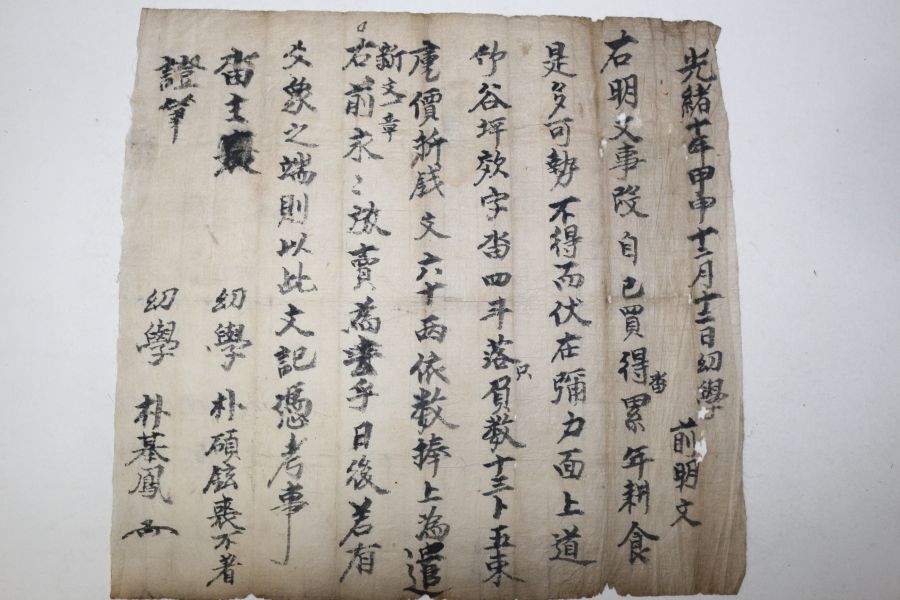 光緖十年甲申十二月十二日幼學 前明文
右明文事段自己買得畓累年耕食
是多可勢不得而伏在彌力面上道
竹谷坪效字畓四斗落只負数十三卜五束
庫價折錢文六十両依数捧上為遣
新文一章
右前永〻放賣為乎日後若有
爻象之端則以此文記憑考事
畓主 幼學 朴碩鉉喪不着
證筆 幼學 朴基鳳